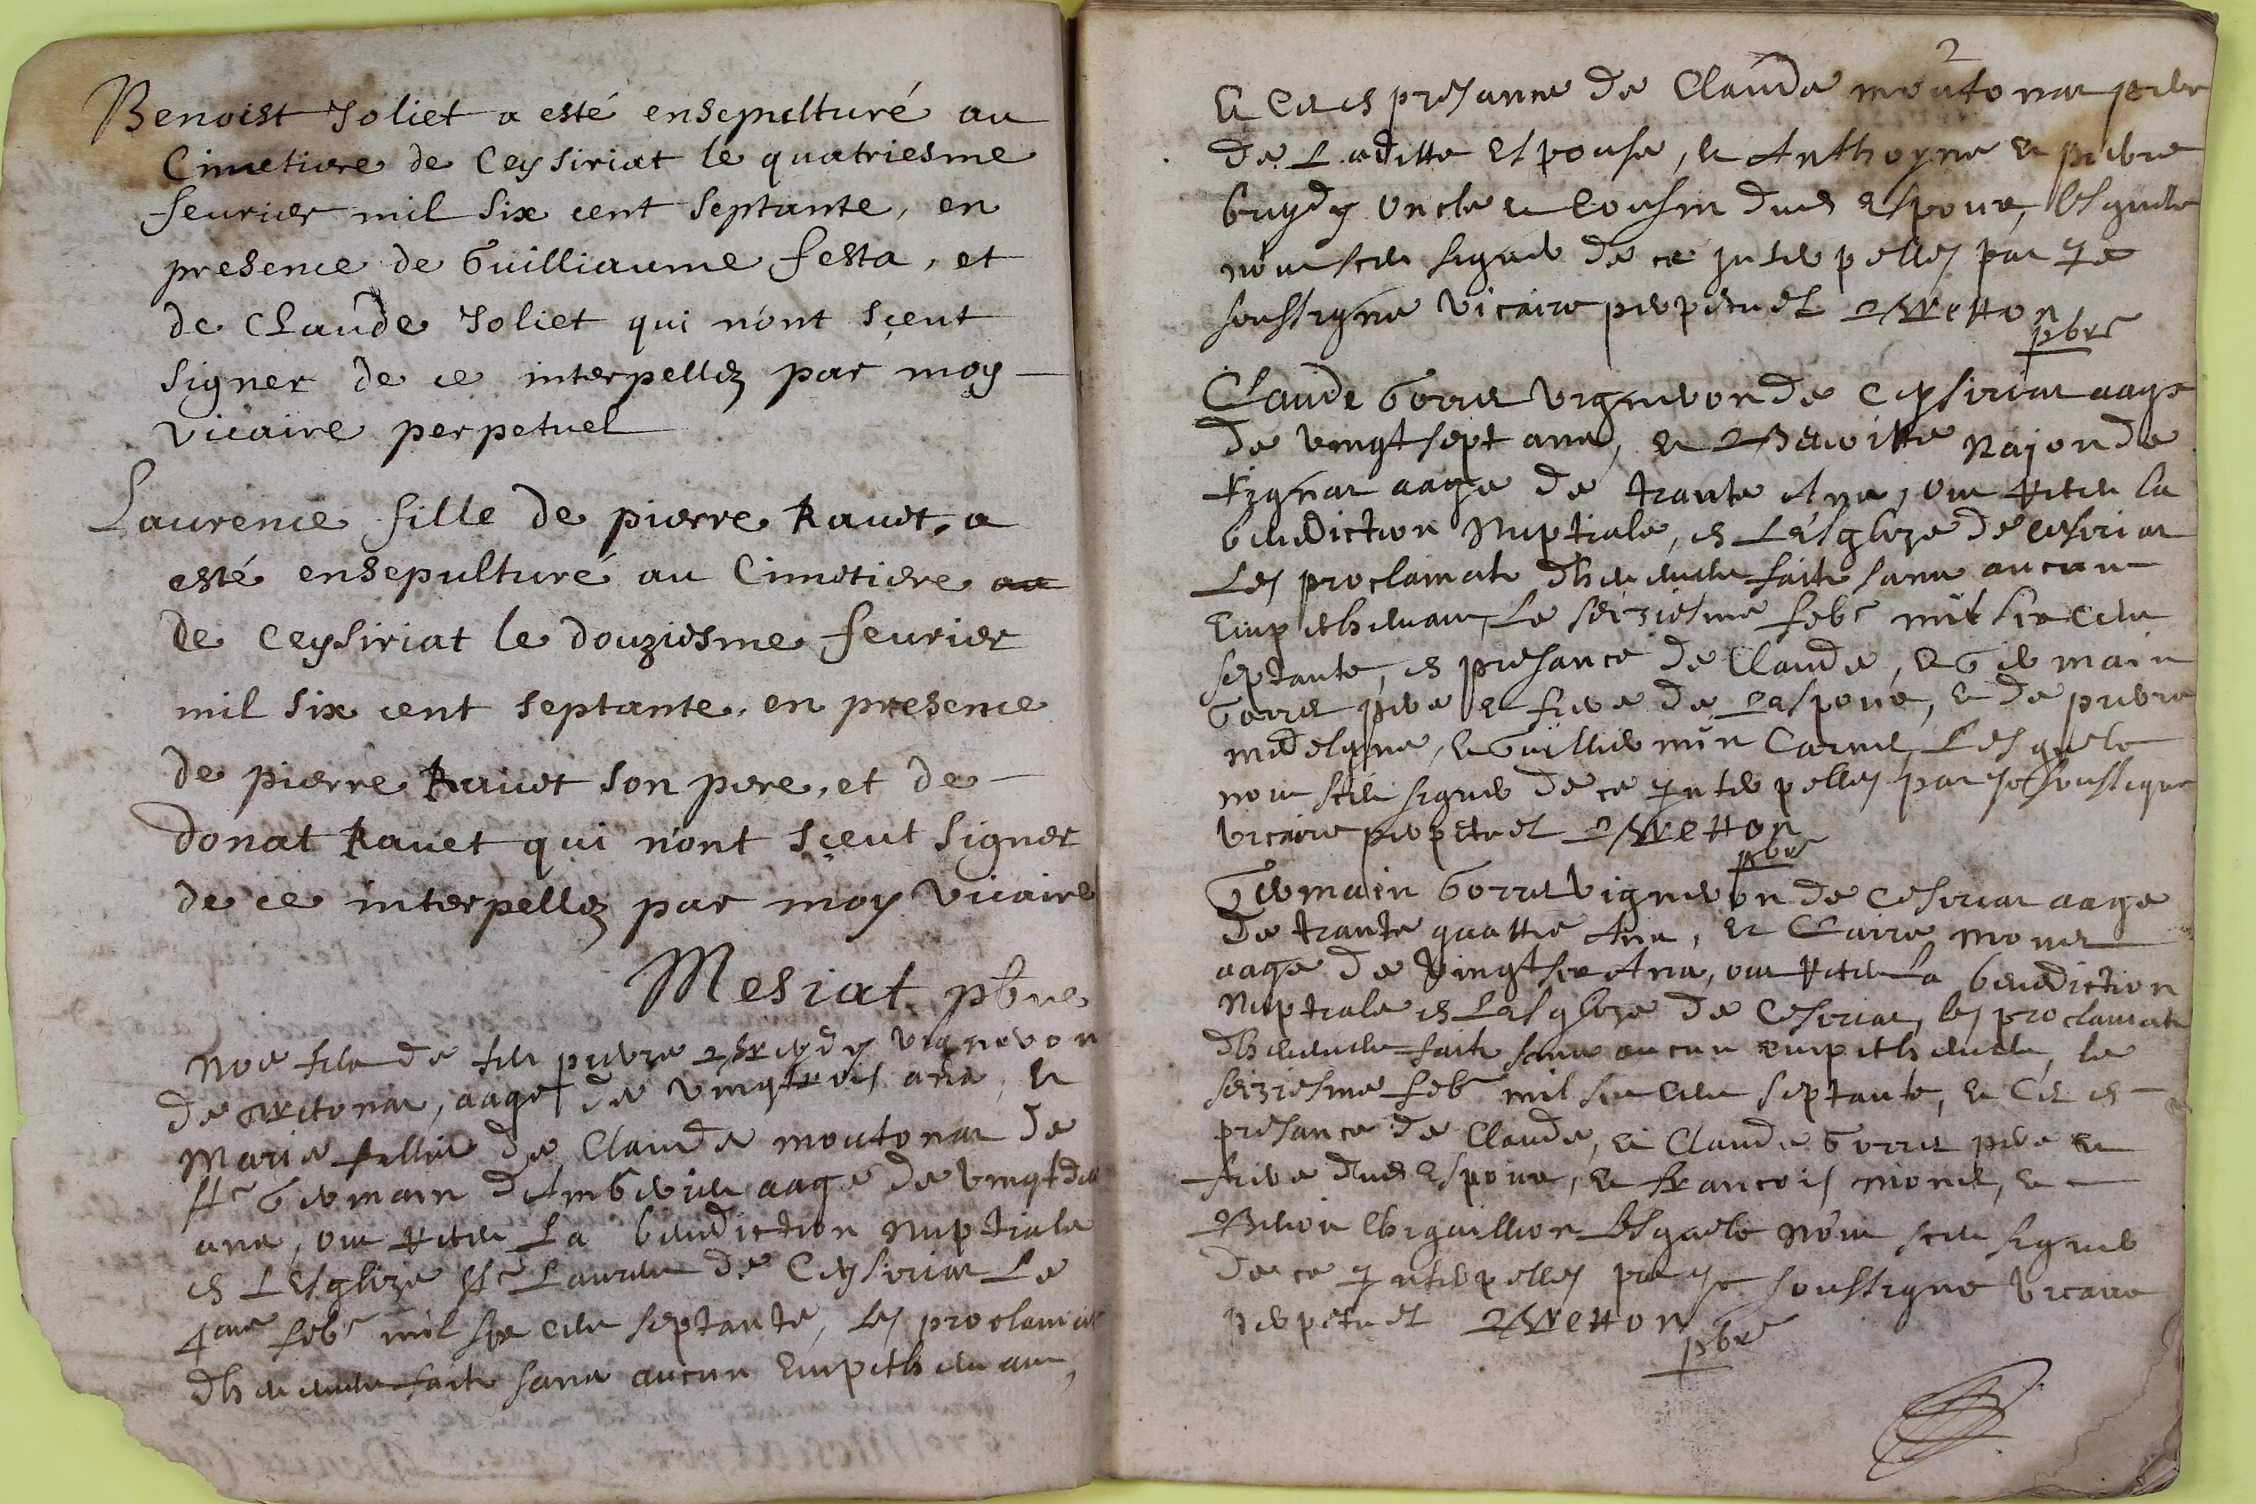 Benoist Joliet a esté ensepulturé au
Cimetiere de Ceysiriat le quatriesme
feurier mil six cent septante, en
presence de Guilliaume festa, et
de Claude Joliet qui n'ont sçeut
signer de ce interpellez par moy
vicaire perpetuel
Laurence fille de pierre Rauet, a
esté ensepulturé au Cimetiere au
de Ceysiriat le douziesme feurier
mil six cent septante, en presence
de pierre Rauet son pere, et de
donat Rauet qui n'ont sçeut signer
de ce interpellez par moy vicaire
Mesiat pbre
de feu pierre vigneron
aage de vingt ans, et
Marie de Claude moutonat de
St Germain aage de vingt
ans, ont la benediction nuptiale
en L'Esglize St Laurent de Ceysiriat Le
4me febr mil six cent septante, les proclamats
faits sans aucun Empethemant,
2
et Ce en presance de Claude moutonat pere
de Laditte Espouse, et Anthoyne et pierre
oncle et cousin dud Espoux, lesquels
n'ont sceu signer de ce interpelles par je
soussigne vicaire perpetuel
pbre
Claude Gorret vigneron de Ceysiriat aage
de vingt sept ans, et Benoitte de
aage de trante Ans, ont la
benediction Nuptiale, en L'Esglize de Cesiriat
Les proclamats faits sans aucun
Empethemant, Le seiziesme febr mil six cent
septante, en presance de Claude, et Germain
Gorret pere et frere de L'espoux, et de pierre
et Lesquels
n'ont sceu signer de ce interpelles par je soussigne
vicaire perpetuel
pbre
Germain Gorret vigneron de Cesiriat aage
de trante quattre Ans, et Claire monet
aage de vingt six Ans, ont La benediction
Nuptiale en L'Esglize de Cesiriat, les proclamats
faits sans aucun empethement, le
seiziesme febr mil six cent septante, et Ce en
presance de Claude, et Claude Gorret pere et
frere dud Espoux, et francois monet, et
Benoit Lesquels n'ont sceu signer
de ce interpelles par je soussigne vicaire
perpetuel
pbre